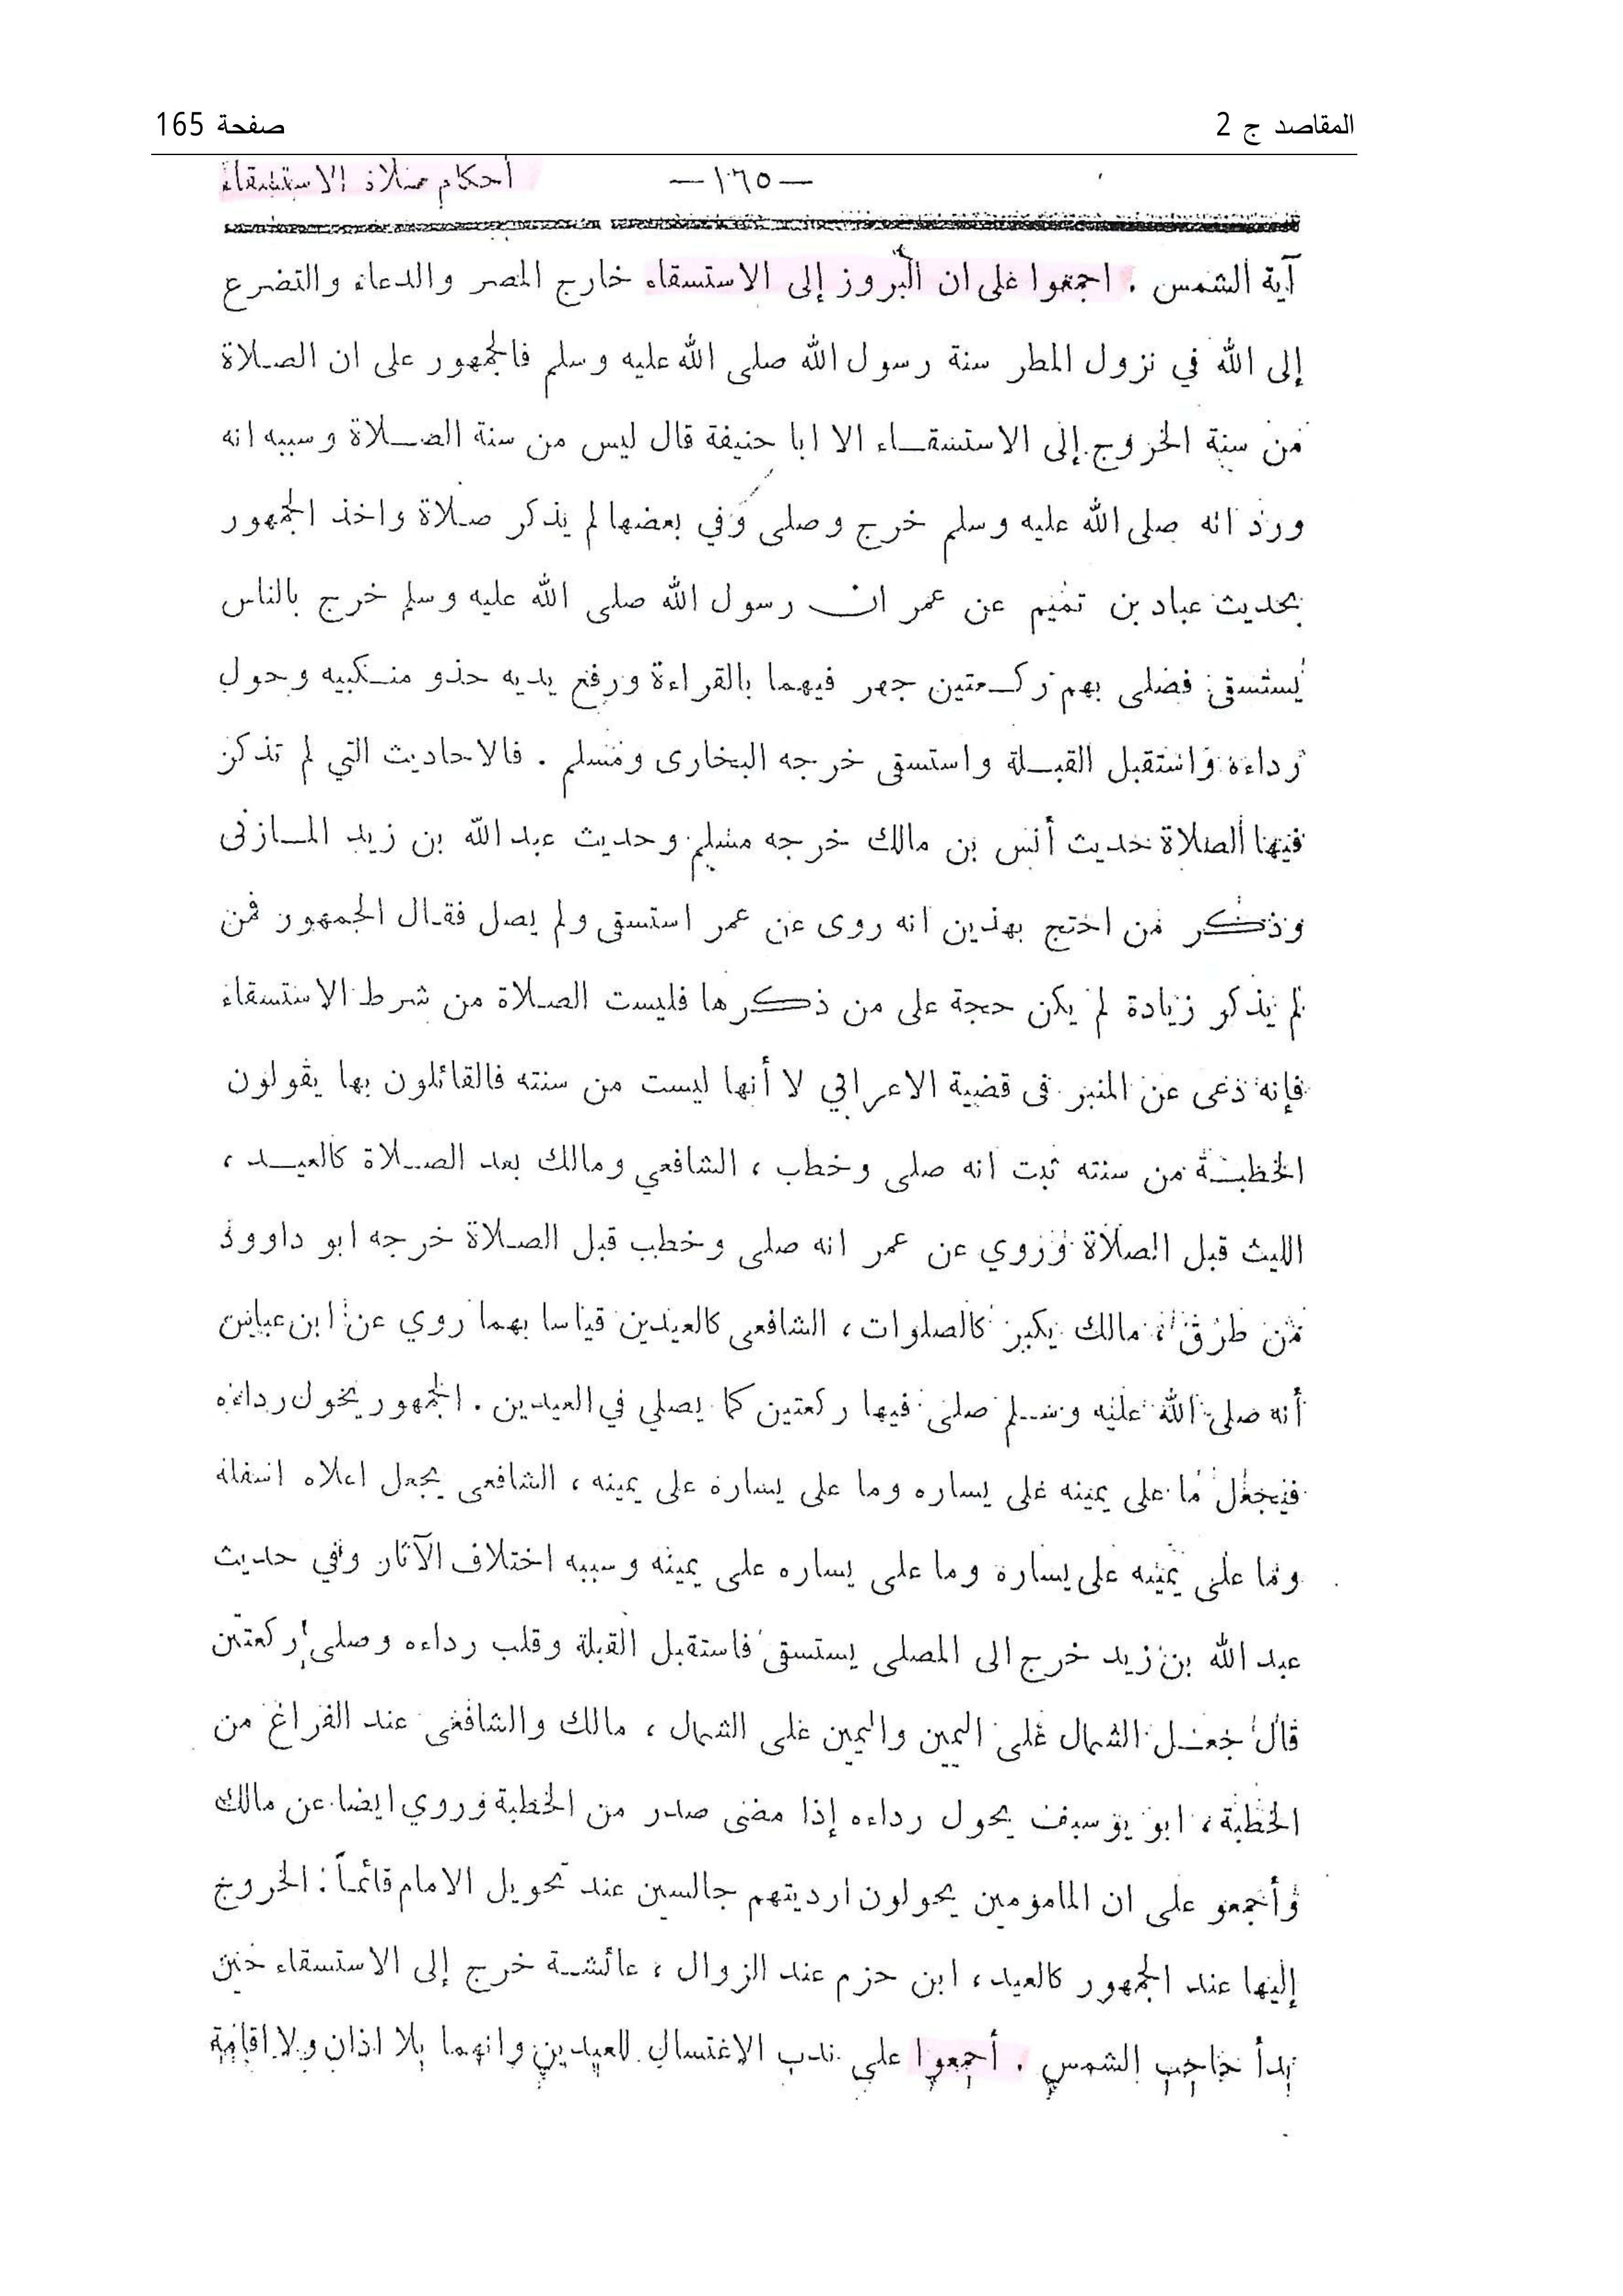 المقاصد ج 2 صفحة 165
—١٦٥— أحكام صلاة الاستسقاء
آية الشمس . اجمعوا على ان البروز إلى الاستسقاء خارج المصر والدعاء والتضرع
إلى الله في نزول المطر سنة رسول الله صلى الله عليه وسلم فالجمهور على ان الصلاة
من سنة الخروج إلى الاستسقاء الا ابا حنيفة قال ليس من سنة الصلاة وسببه انه
ورد انه صلى الله عليه وسلم خرج وصلى وفي بعضها لم يذكر صلاة واخذ الجمهور
بحديث عباد بن تميم عن عمر ان رسول الله صلى الله عليه وسلم خرج بالناس
يستسقى فصلى بهم ركعتين جهر فيهما بالقراءة ورفع يديه حذو منكبيه وحول
رداءه واستقبل القبلة واستسقى خرجه البخارى ومسلم . فالاحاديث التي لم تذكر
فيها الصلاة حديث أنس بن مالك خرجه مسلم وحديث عبد الله بن زيد المازنى
وذكر من احتج بهذين انه روى عن عمر استسقى ولم يصل فقال الجمهور فمن
لم يذكر زيادة لم يكن حجة على من ذكرها فليست الصلاة من شرط الاستسقاء
فإنه دعى عن المنبر فى قضية الاعرابي لا أنها ليست من سنته فالقائلون بها يقولون
الخطبة من سنته ثبت انه صلى وخطب ، الشافعي ومالك بعد الصلاة كالعيد ،
الليث قبل الصلاة وروي عن عمر انه صلى وخطب قبل الصلاة خرجه ابو داوود
من طرق ، مالك يكبر كالصلوات ، الشافعى كالعيدين قياسا بهما روي عن ابن عباس
أنه صلى الله عليه وسلم صلى فيها ركعتين كما يصلي في العيدين . الجمهور يحول رداءه
فيجعل ما على يمينه على يساره وما على يساره على يمينه ، الشافعى يجعل اعلاه اسفله
وما على يمينه على يساره وما على يساره على يمينه وسببه اختلاف الآثار وفي حديث
عبد الله بن زيد خرج الى المصلى يستسقى فاستقبل القبلة وقلب رداءه وصلى ركعتين
قال جعل الشمال على اليمين واليمين على الشمال ، مالك والشافعى عند الفراغ من
الخطبة ، ابو يوسف يحول رداءه إذا مضى صدر من الخطبة وروي ايضا عن مالك
وأجمعو على ان المامومين يحولون ارديتهم جالسين عند تحويل الامام قائماً : الخروج
إليها عند الجمهور كالعيد ، ابن حزم عند الزوال ، عائشة خرج إلى الاستسقاء حين
بدأ حاجب الشمس . أجمعوا على ندب الاغتسال للعيدين وانهما بلا اذان ولا اقامة